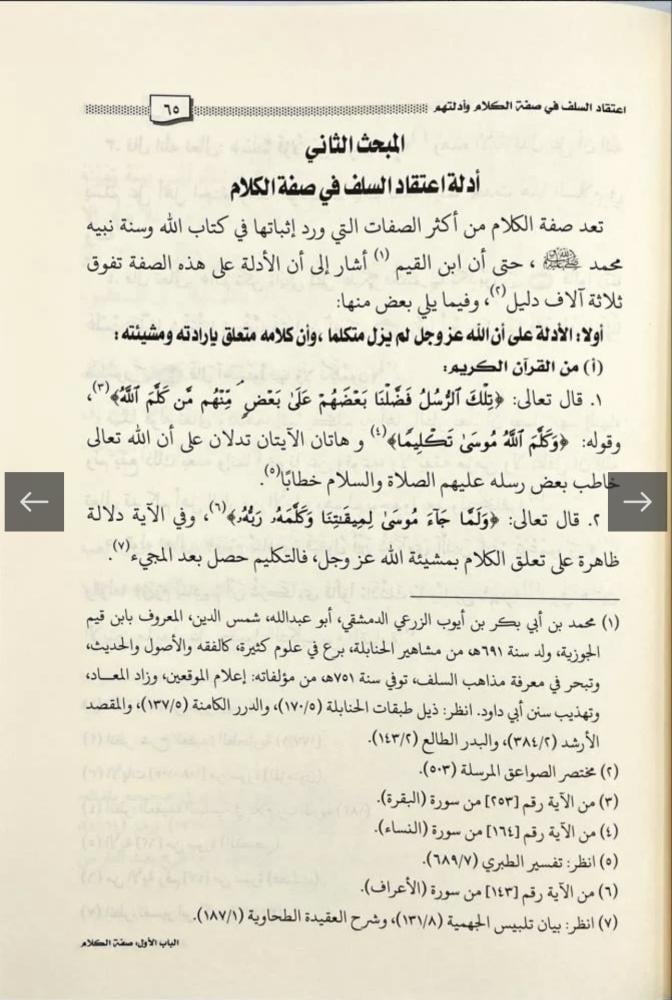 اعتقاد السلف في صفة الكلام وأدلتهم
٦٥
المبحث الثاني
أدلة اعتقاد السلف في صفة الكلام
تعد صفة الكلام من أكثر الصفات التي ورد إثباتها في كتاب الله وسنة نبيه
محمد ﷺ ، حتى أن ابن القيم (١) أشار إلى أن الأدلة على هذه الصفة تفوق
ثلاثة آلاف دليل(٢)، وفيما يلي بعض منها:
أولا: الأدلة على أن الله عز وجل لم يزل متكلما ، وأن كلامه متعلق بإرادته ومشيئته :
(أ) من القرآن الكريم:
١. قال تعالى: ﴿تِلْكَ ٱلرُّسُلُ فَضَّلْنَا بَعْضَهُمْ عَلَىٰ بَعْضٍۘ مِّنْهُم مَّن كَلَّمَ ٱللَّهُ﴾(٣)،
وقوله: ﴿وَكَلَّمَ ٱللَّهُ مُوسَىٰ تَكْلِيمًا﴾(٤) و هاتان الآيتان تدلان على أن الله تعالى
خاطب بعض رسله عليهم الصلاة والسلام خطابًا(٥).
٢. قال تعالى: ﴿وَلَمَّا جَآءَ مُوسَىٰ لِمِيقَٰتِنَا وَكَلَّمَهُۥ رَبُّهُۥ﴾(٦)، وفي الآية دلالة
ظاهرة على تعلق الكلام بمشيئة الله عز وجل، فالتكليم حصل بعد المجيء(٧).
(١) محمد بن أبي بكر بن أيوب الزرعي الدمشقي، أبو عبدالله، شمس الدين، المعروف بابن قيم
الجوزية، ولد سنة ٦٩١هـ، من مشاهير الحنابلة، برع في علوم كثيرة، كالفقه والأصول والحديث،
وتبحر في معرفة مذاهب السلف، توفي سنة ٧٥١هـ، من مؤلفاته: إعلام الموقعين، وزاد المعـاد،
وتهذيب سنن أبي داود. انظر: ذيل طبقات الحنابلة (١٧٠/٥)، والدرر الكامنة (١٣٧/٥)، والمقصد
الأرشد (٣٨٤/٢)، والبدر الطالع (١٤٣/٢).
(٢) مختصر الصواعق المرسلة (٥٠٣).
(٣) من الآية رقم [٢٥٣] من سورة (البقرة).
(٤) من الآية رقم [١٦٤] من سورة (النساء).
(٥) انظر: تفسير الطبري (٦٨٩/٧).
(٦) من الآية رقم [١٤٣] من سورة (الأعراف).
(٧) انظر: بيان تلبيس الجهمية (١٣١/٨)، وشرح العقيدة الطحاوية (١٨٧/١).
الباب الأول: صفة الكلام